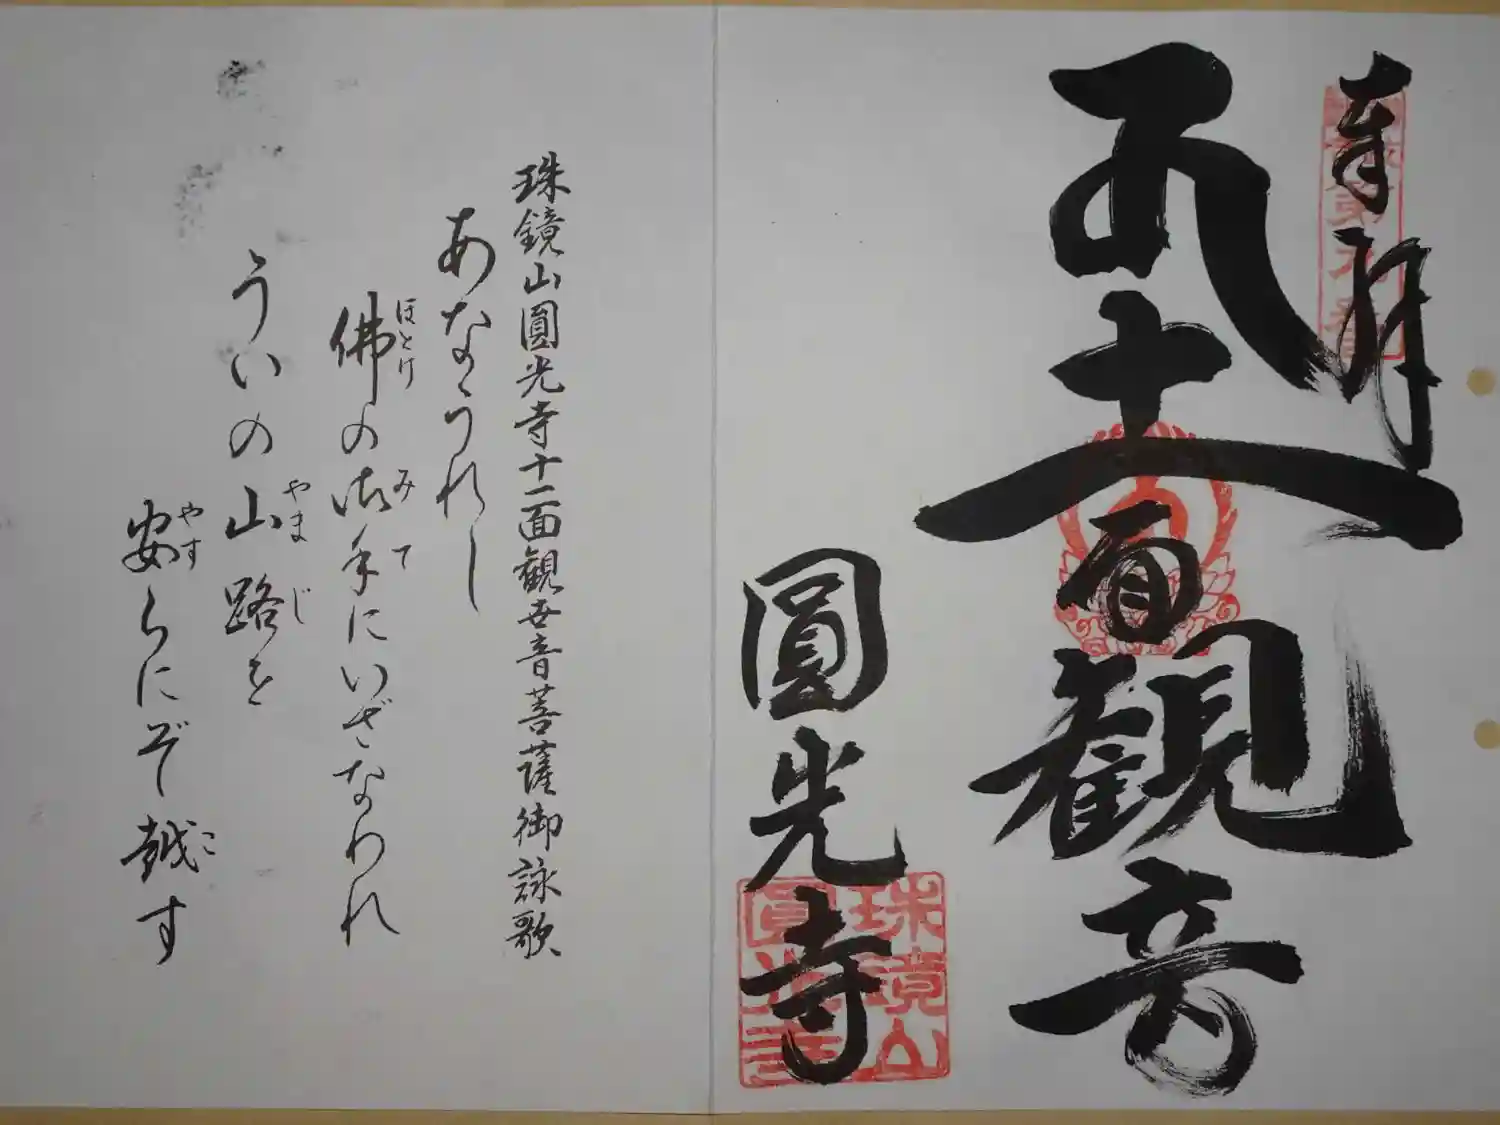 奉拝
十一面観音
圓光寺
珠鏡山
圓光寺
珠鏡山圓光寺十一面観世音菩薩御詠歌
あなうれし
ほとけ みて
佛の御手にいざなわれ
やまじ
ういの山路を
やす こ
安らにぞ越す